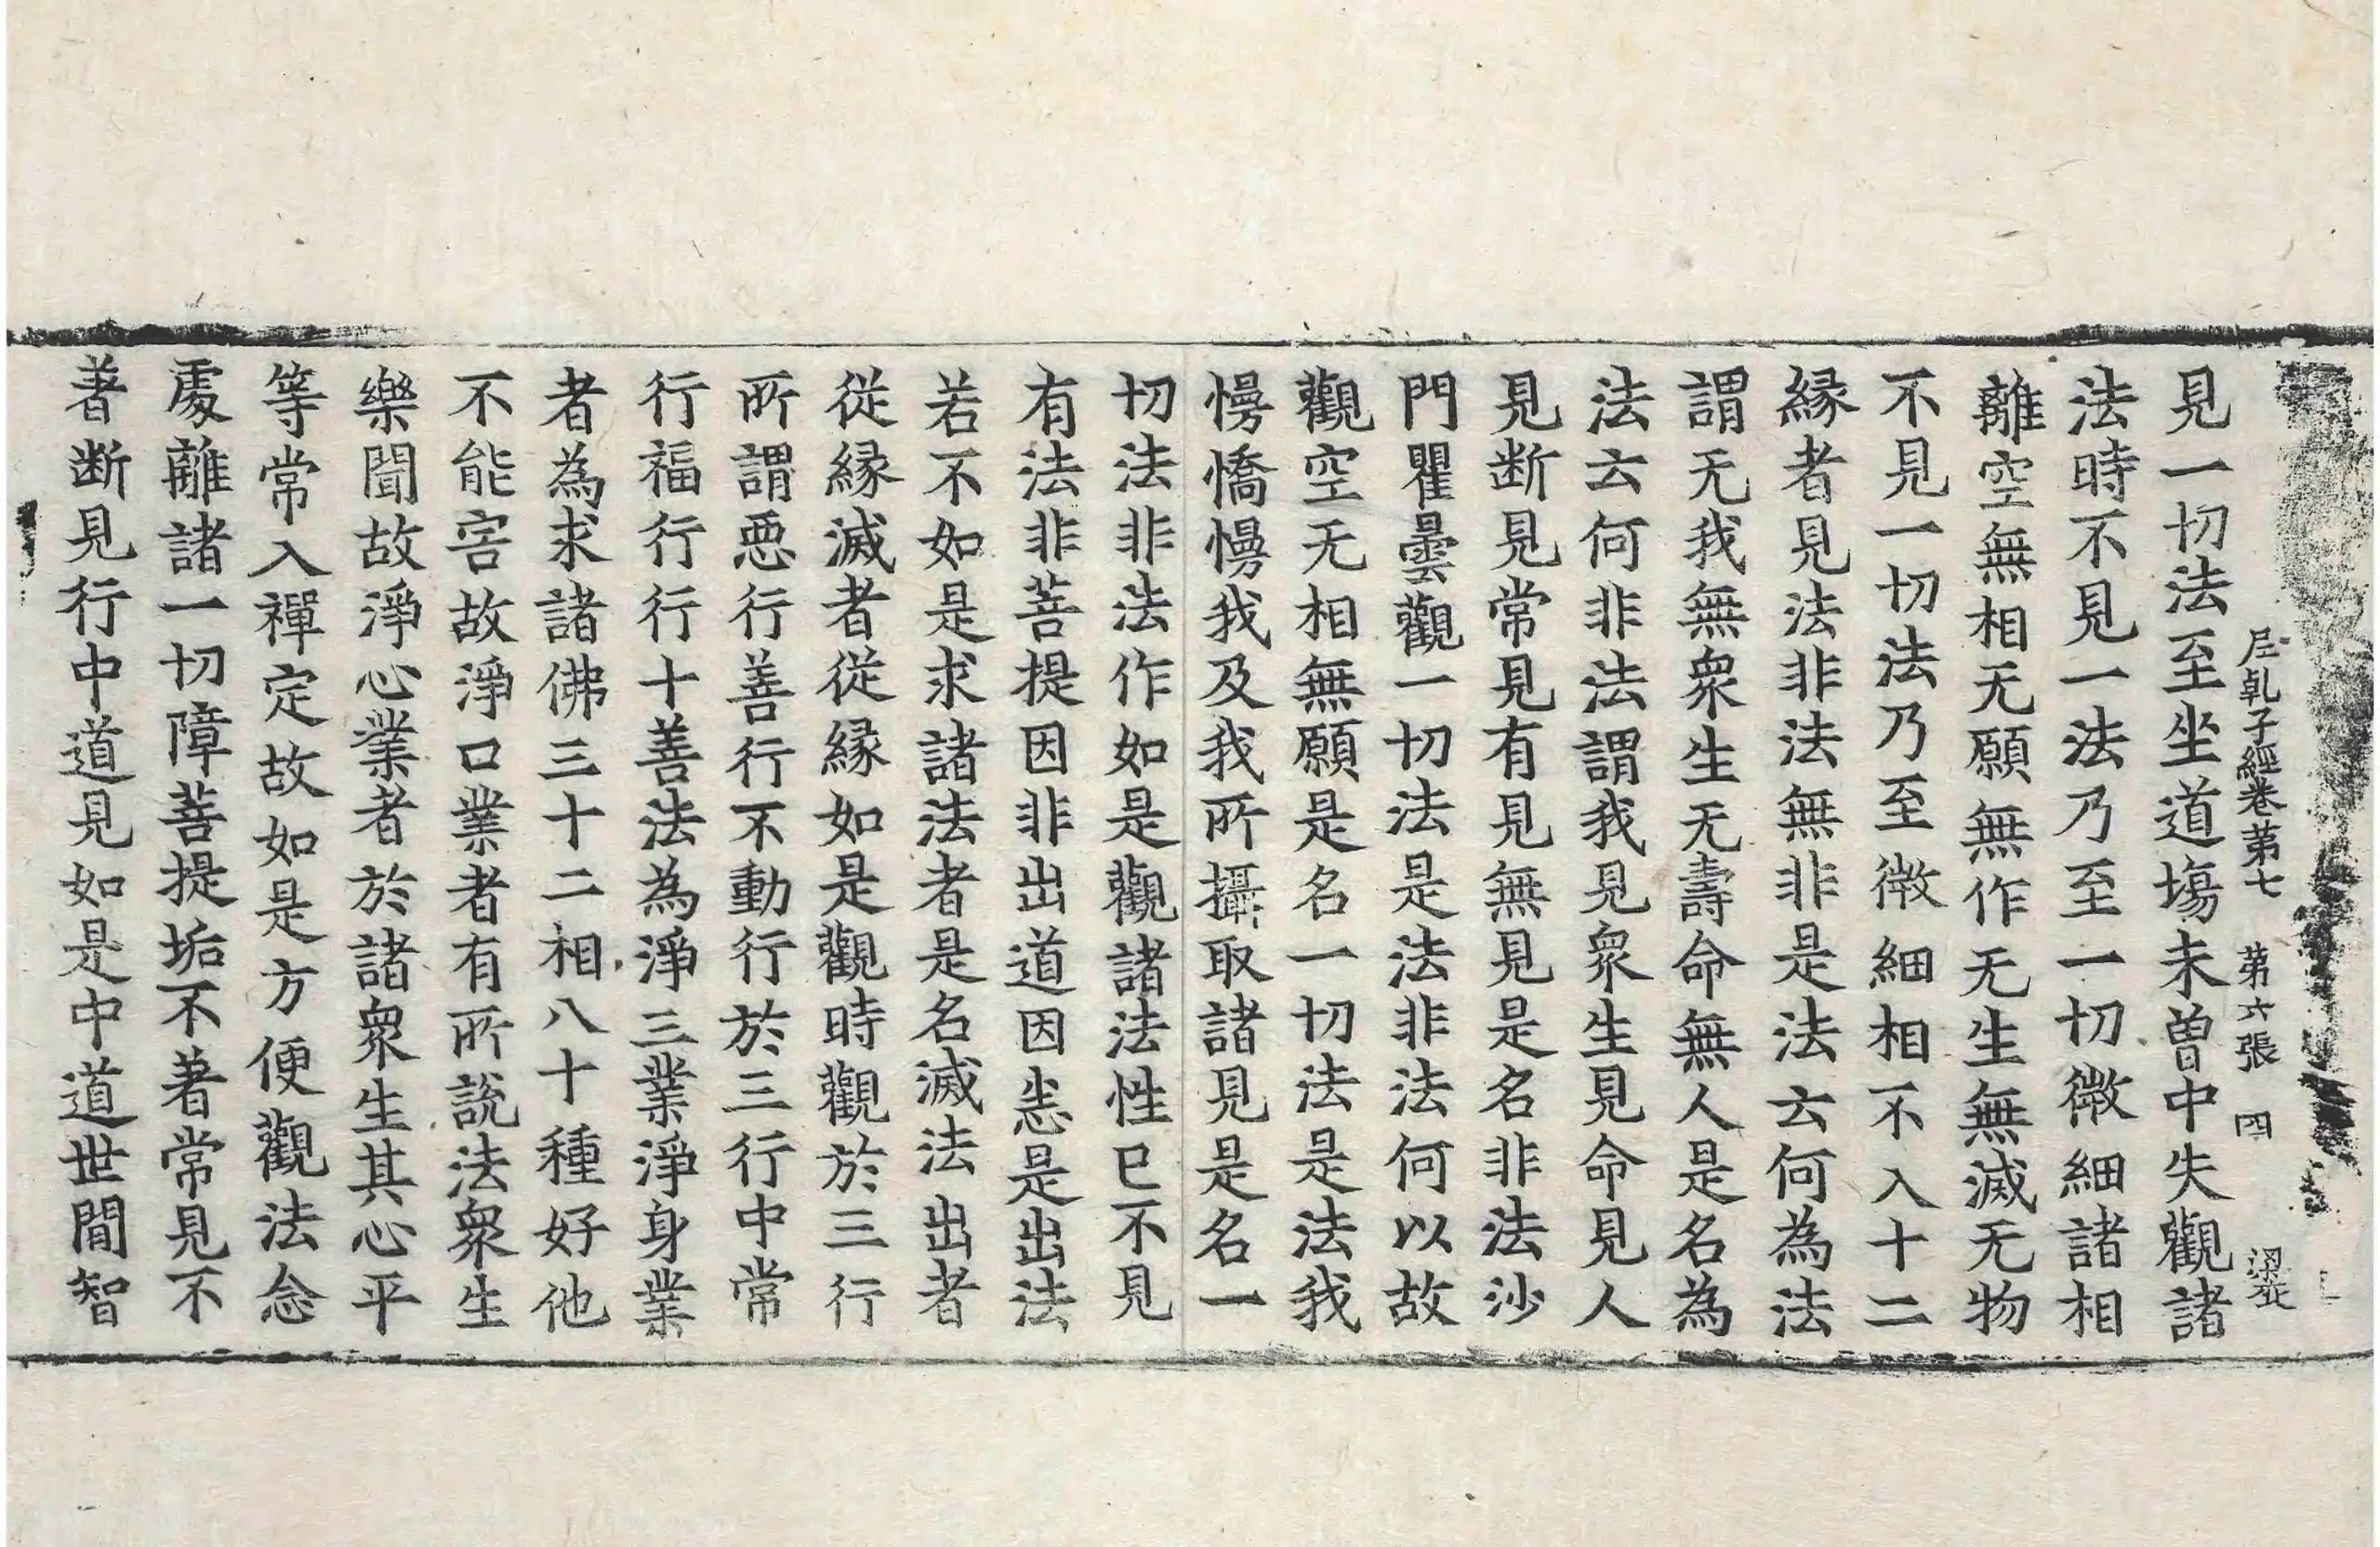 尼乹子經卷苐七　苐六張　四
見一切法至坐道場未曽中失觀諸
法時不見一法乃至一切微細諸相
離空無相无願無作无生無滅无物
不見一切法乃至微細相不入十二
縁者見法非法無非是法云何為法
謂无我無衆生无壽命無人是名為
法云何非法謂我見衆生見命見人
見断見常見有見無見是名非法沙
門瞿曇觀一切法是法非法何以故
觀空无相無願是名一切法是法我
慢憍慢我及我所攝取諸見是名一
切法非法作如是觀諸法性已不見
有法非菩提因非出道因恙是出法
若不如是求諸法者是名滅法出者
従縁滅者従縁如是觀時觀於三行
所謂惡行善行不動行於三行中常
行福行行十善法為淨三業淨身業
者為求諸佛三十二相八十種好他
不能害故淨口業者有所說法衆生
樂聞故淨心業者於諸衆生其心平
等常入禪定故如是方便觀法念
處離諸一切障菩提垢不著常見不
著断見行中道見如是中道世間智